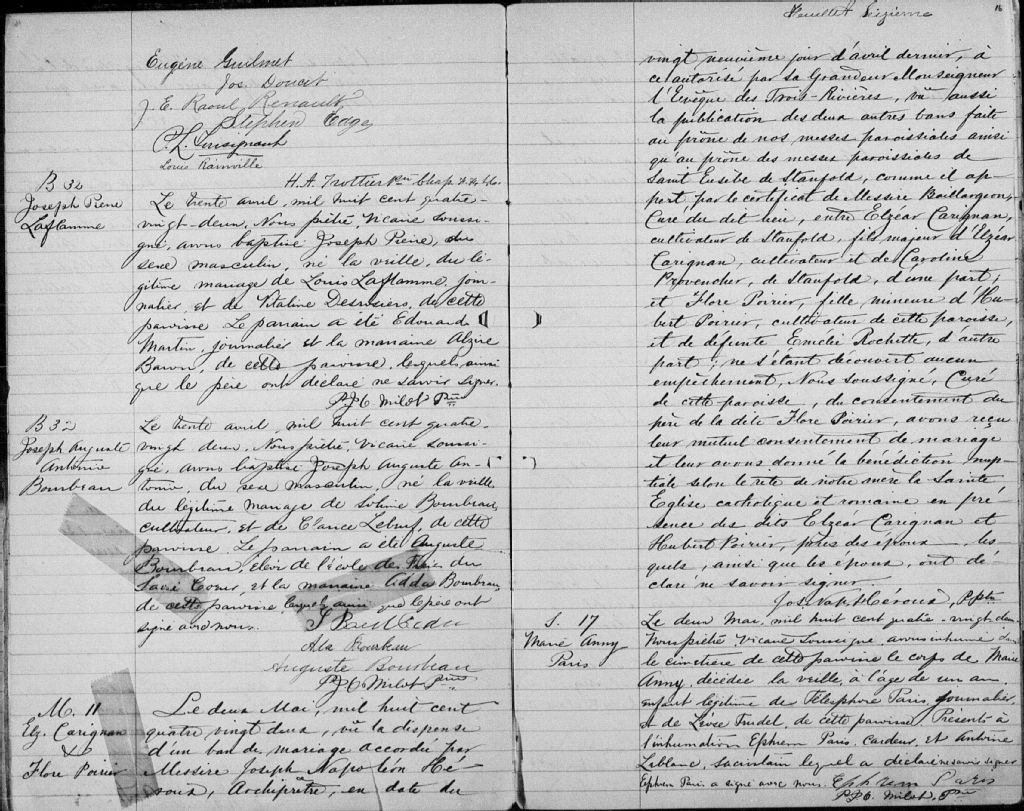 Eugène Guilmet
Jos. Doucet
J. E. Raoul Renault
Stephen Edge
Louis Rainville
H. A. Trottier ptre Chap.
B 32
Joseph Pierre
Laflamme
Le trente avril, mil huit cent quatre-
vingt-deux, Nous prêtre, Vicaire soussi-
gné, avons baptisé Joseph Pierre, du
sexe masculin, né la veille, du lé-
gitime mariage de Louis Laflamme, jour-
nalier, et de Vitaline Desrosiers, de cette
paroisse. Le parrain a été Edouard
Martin, journalier et la marraine Alzire
de cette paroisse, lesquels, ainsi
que le père ont déclaré ne savoir signer.
P J O Milot Ptre
B 32
Joseph Auguste
Antonio
Bourbeau
Le trente avril, mil huit cent quatre
vingt deux, Nous prêtre, Vicaire soussi-
gné, avons baptisé Joseph Auguste An-
tonio, du sexe masculin, né la veille
du légitime mariage de Bourbeau,
cultivateur, et de Lebeuf, de cette
paroisse. Le parrain a été Auguste
Bourbeau, de l'école de du
Sacré Coeur, et la marraine Adda Bourbeau
de cette paroisse, lesquels ainsi que le père ont
signé avec nous.
Bourbeau
Auguste Bourbeau
P J O Milot Ptre
M. 11
Elz. Carignan
&
Flore Poirier
Le deux Mai, mil huit cent
quatre vingt deux, vû la dispense
d'un ban de mariage accordée par
Messire Joseph Napoléon Hé-
roux, Archiprêtre, en date du
Feuillet Seizième
16
vingt neuvième jour d'avril dernier, à
ce autorisé par Sa Grandeur Monseigneur
l'Evêque des Trois-Rivières, vû aussi
la publication des deux autres bans faite
au prône de nos messes paroissiales ainsi
qu'au prône des messes paroissiales de
Saint Eusèbe de Stanfold, comme il ap-
pert par le certificat de Messire Baillargeon,
Curé du dit lieu, entre Elzéar Carignan,
cultivateur de Stanfold, fils majeur d'Elzéar
Carignan, cultivateur et de Caroline
Provencher, de Stanfold, d'une part;
et Flore Poirier, fille mineure d'Hu-
bert Poirier, cultivateur de cette paroisse,
et de défunte Emélie Rochette, d'autre
part; ne s'étant découvert aucun
empêchement, Nous soussigné, Curé
de cette paroisse, du consentement du
père de la dite Flore Poirier, avons reçu
leur mutuel consentement de mariage
et leur avons donné la bénédiction nup-
tiale selon le rite de notre mère la Sainte
Eglise catholique et romaine en pré-
sence des dits Elzéar Carignan et
Hubert Poirier, pères des époux, les
quels, ainsi que les époux, ont dé-
claré ne savoir signer.
Jos. Nap. Héroux, Ptre
S. 17
Marie Anny
Paris
Le deux Mai, mil huit cent quatre-vingt-deux
Nous prêtre Vicaire soussigné avons inhumé dans
le cimetière de cette paroisse le corps de Marie
Anny, décédée la veille, à l'âge de un an,
enfant légitime de Télesphore Paris, journalier,
et de Trudel de cette paroisse. Présents à
l'inhumation Ephrem Paris, cardeur, et Antoine
Leblanc, sacristain lequel a déclaré ne savoir signer
Ephrem Paris a signé avec nous. Ephrem Paris
P J O Milot, Ptre